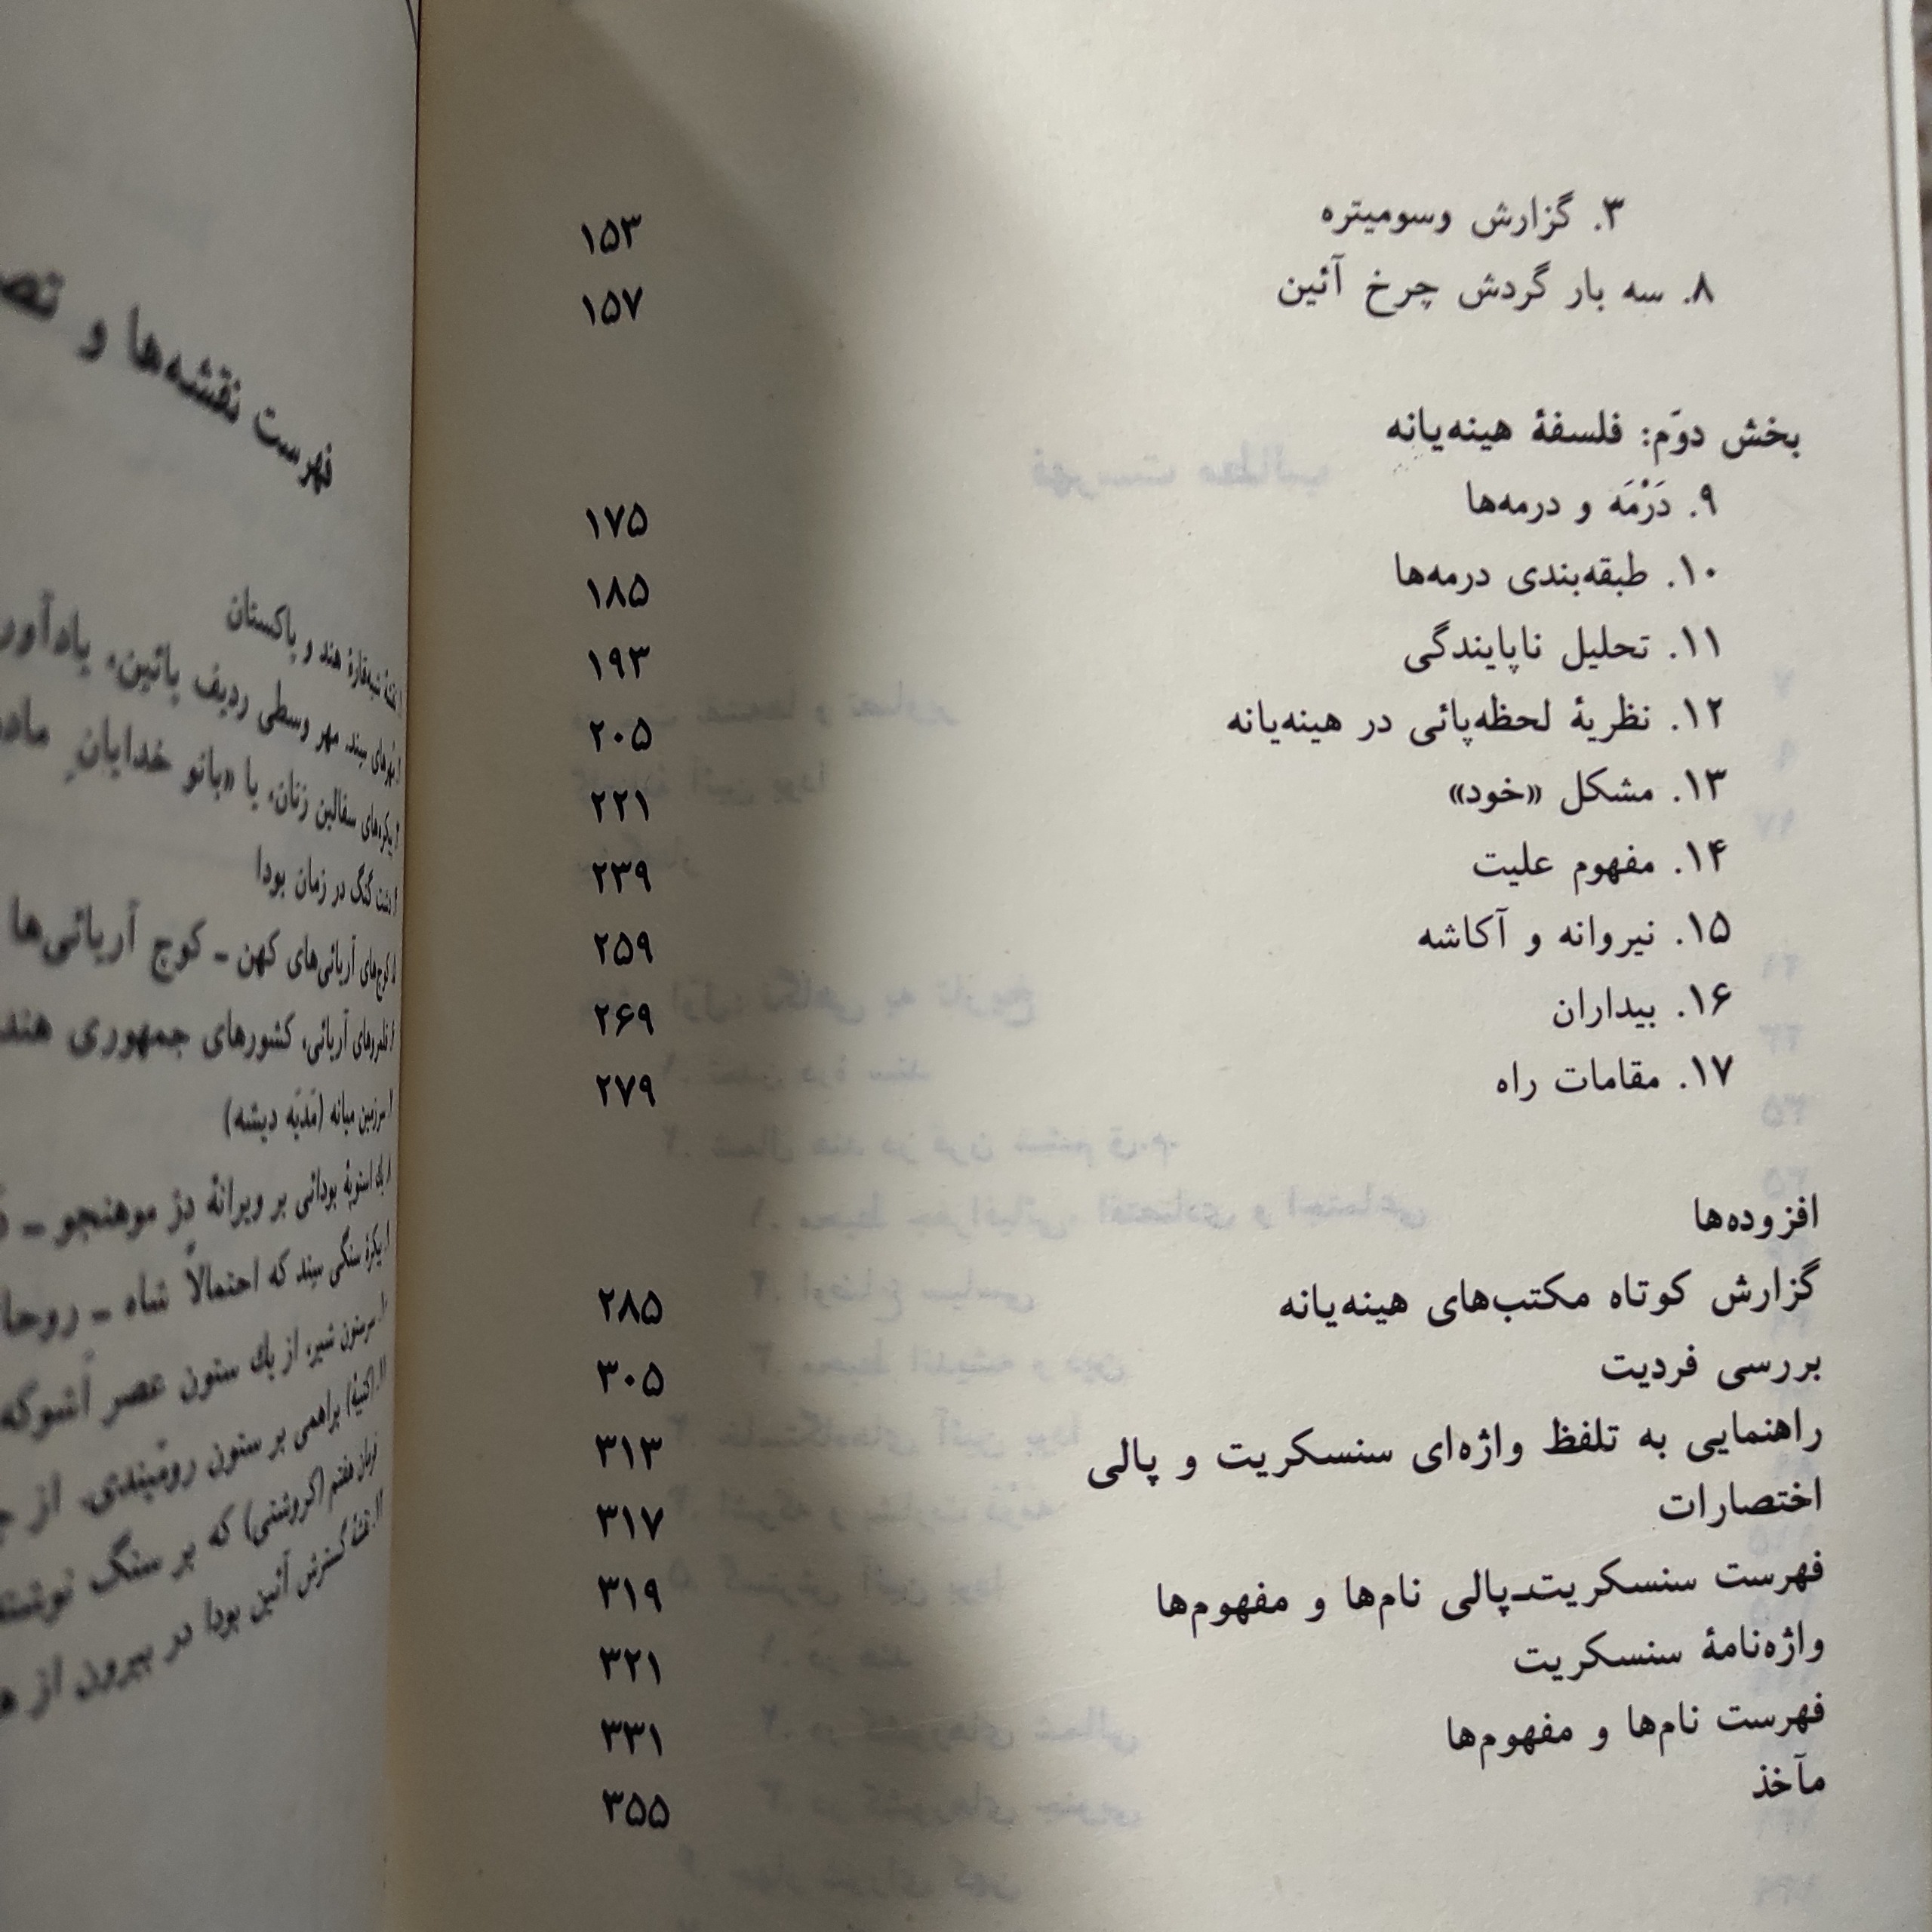 ۳. گزارش وسومیتره ۱۵۳
۸. سه بار گردش چرخ آئین ۱۵۷
بخش دوّم: فلسفهٔ هینه‌یانه
۹. دَرْمَه و درمه‌ها ۱۷۵
۱۰. طبقه‌بندی درمه‌ها ۱۸۵
۱۱. تحلیل ناپایندگی ۱۹۳
۱۲. نظریهٔ لحظه‌پائی در هینه‌یانه ۲۰۵
۱۳. مشکل «خود» ۲۲۱
۱۴. مفهوم علیت ۲۳۹
۱۵. نیروانه و آکاشه ۲۵۹
۱۶. بیداران ۲۶۹
۱۷. مقامات راه ۲۷۹
افزوده‌ها
گزارش کوتاه مکتب‌های هینه‌یانه ۲۸۵
بررسی فردیت ۳۰۵
راهنمایی به تلفظ واژه‌ای سنسکریت و پالی ۳۱۳
اختصارات ۳۱۷
فهرست سنسکریت‌ـ‌پالی نام‌ها و مفهوم‌ها ۳۱۹
واژه‌نامهٔ سنسکریت ۳۲۱
فهرست نام‌ها و مفهوم‌ها ۳۳۱
مآخذ ۳۵۵
فهرست نقشه‌ها و
شبه‌قارهٔ هند و پاکستان
مهرهای سِند. مهر وسطی ردیف پائین،
پیکره‌های سفالین زنان، یا «بانو خدایانِ
دشت گنگ در زمان بودا
کوچ‌های آریائی‌های کهن ـ کوچ آریائی‌ها
قلمروهای آریائی، کشورهای جمهوری
سرزمین میانه (مَدیَه دیشه)
۸. یك استوپهٔ بودائی بر ویرانهٔ دِژ موهنجو ـ
پیکرهٔ سنگی سِند که احتمالاً شاه ـ
۱۰. سرستون شیر، از یك ستون عصر اَشوکه
براهمی بر ستون رومّیندی. از
فرمان هفتم (کروشتی) که بر سنگ
نقشهٔ گسترش آئین بودا در بیرون از